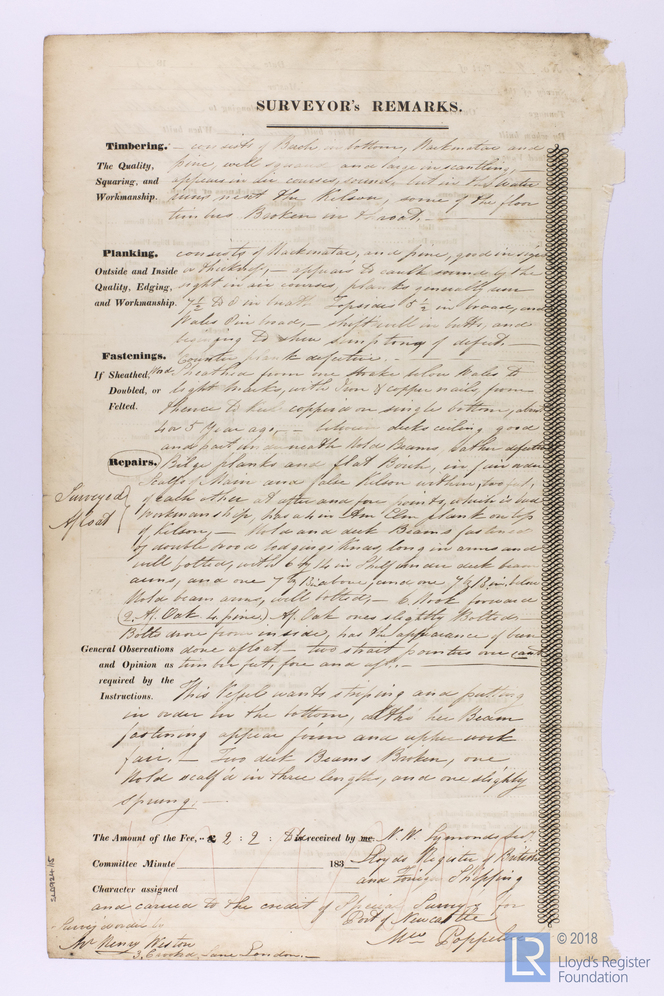 SURVEYOR's REMARKS.
Timbering. – consists of Birch in bottom, Hackmatac and
The Quality, pine, well squared and large in scantling,
Squaring, and appears in air courses, sound, but in the Water
Workmanship. runs next the Kelson, some of the floor
timbers Broken in throat. –
Planking. consists of Hackmatac, and pine, good in size
Outside and Inside or thickness, – appears to caulk soundely the
Quality, Edging, right in air courses, planks generally
and Workmanship. 7½ to 8 in broad Topsides 5½ in broad, and
Wales 8 in broad, – shift well in butts, and
begining to shew symptoms of defect. –
Fastenings. Counter plank defective. –
If Sheathed, And. Sheathed from one strake below Wales to
Doubled, or light marks, with Iron & copper nails, from
Felted. thence to keel coppered on single bottom,
4 or 5 years ago, – between decks ceiling good
and part in neath Hold Beams, rather defective
Repairs. Bilge planks and flat Bow, in fair order
Surveyed Afloat
Scalfs of Main and false Kelson within two feet,
of each other at after and fore points, which is bad
Workmanship, has a in Am Elm plank on top
of Kelson, – Hold and deck Beams fastened
by double wood lodging Knees, long in arms and
well bolted, with 6 by 14 in under deck beam
arms, and one 7 by 13 in above, and one 7 by 13 in below
Hold beam arms, well bolted; – 6 Hook forward
(2 Af. Oak 4 pine.) Af. Oak ones slightly Bolted –
Bolts drove from inside, has the appearance of been
General Observations done afloat, – two strait pointers one cant
and Opinion as timber fut, fore and aft. –
required by the
Instructions. This Vessel wants striping and putting
in order in the bottom, altho her Beam
fastening appear firm and upper work
fair. – Two deck Beams Broken, one
Hold scalf'd in three lengths, and one slightly
sprung. –
The Amount of the Fee, £ 2 : 2 : received by me, N. W. Symonds
Committee Minute 183 Lloyds Register of British
and Foreign Shipping
Character assigned
and carried to the credit of Special Surveys For
Port of Newcastle
Survey order to
Mr Henry Weston
3, Crooked Lane London. –
LR
© 2018
Lloyd's Register
Foundation